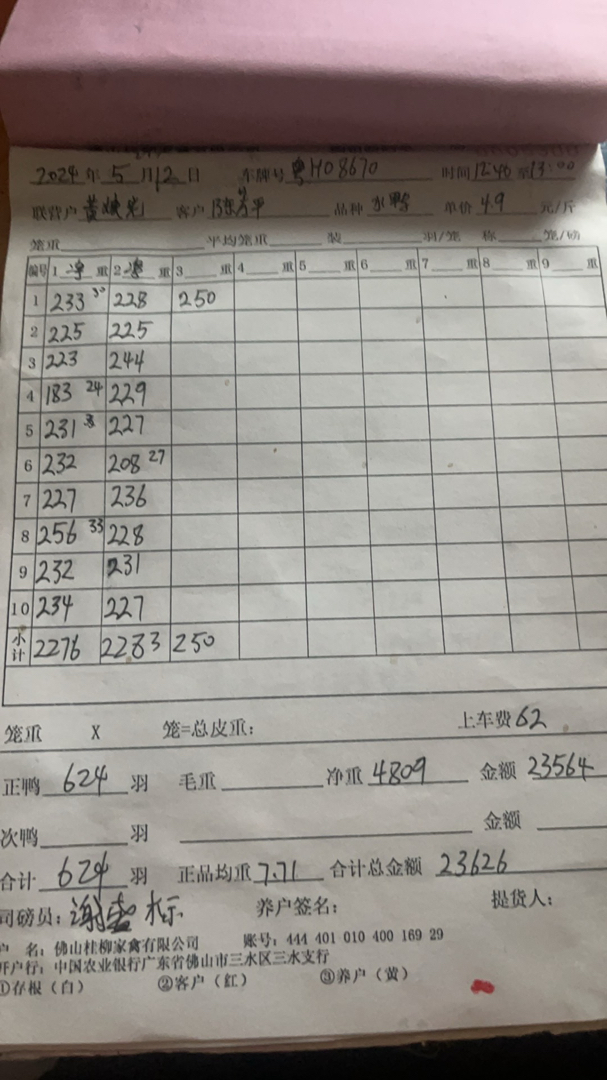 2024年5月12日 车牌号粤H08670 时间12:40至13:00
联营户 黄焕光 客户 陈芳平 品种 水鸭 单价 4.9 元/斤
笼重 平均笼重 装 羽/笼 称 笼/磅
编号 1净重 2净重 3重 4重 5重 6重 7重 8重 9重
1 233 30 228 250
2 225 225
3 223 244
4 183 24 229
5 231 227
6 232 208 27
7 227 236
8 256 33 228
9 232 231
10 234 227
小计 2276 2283 250
笼重 X 笼=总皮重: 上车费62
正鸭 624 羽 毛重 净重 4809 金额 23564
次鸭 羽 金额
合计 624 羽 正品均重 7.71 合计总金额 23626
司磅员: 谢 标 养户签名: 提货人:
户 名: 佛山桂柳家禽有限公司 账号: 444 401 010 400 169 29
开户行: 中国农业银行广东省佛山市三水区三水支行
①存根(白) ②客户(红) ③养户(黄)